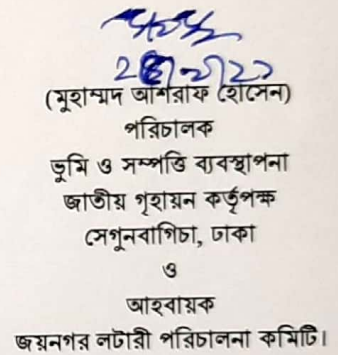 (মুহাম্মদ আশরাফ হোসেন)
পরিচালক
ভূমি ও সম্পত্তি ব্যবস্থাপনা
জাতীয় গৃহায়ন কর্তৃপক্ষ
সেগুনবাগিচা, ঢাকা
ও
আহবায়ক
জয়নগর লটারী পরিচালনা কমিটি।